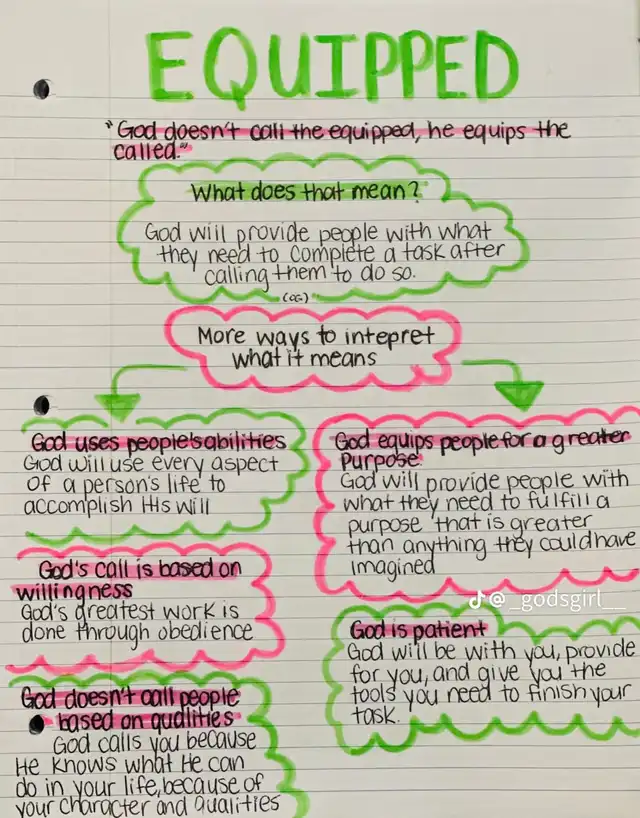 EQUIPPED
"God doesn't call the equipped, he equips the
called."
What does that mean?
God will provide people with what
they need to complete a task after
calling them to do so.
More ways to intepret
what it means
God uses people's abilities
God will use every aspect
of a person's life to
accomplish His will
God's call is based on
willingness
God's greatest work is
done through obedience
God doesn't call people
based on qualities
God calls you because
He knows what He can
do in your life, because of
your character and qualities
God equips people for a greater
purpose.
God will provide people with
what they need to fulfill a
purpose that is greater
than anything they could have
imagined
@_godsgirl__
God is patient
God will be with you, provide
for you, and give you the
tools you need to finish your
task.